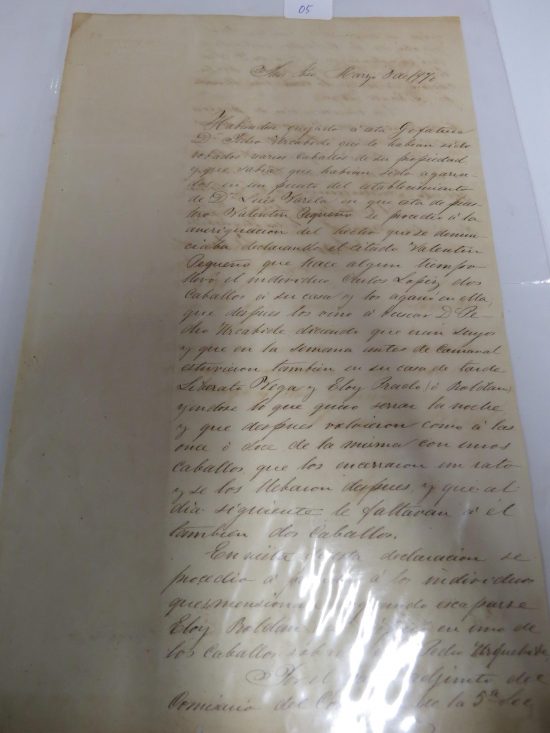 05
Marzo 3 de 1870
Habiendose quejado á esta Gefatura
Dn Pedro Urcabide que le habian sido
robados varios caballos de su propiedad
y que sabia que habian sido agarra-
dos en un puesto del establecimiento
de Dn Luis Varela en que está de pues-
tero Valentin Pequeño se procedio á la
averiguacion del hecho que se denun-
ciaba declarando el citado Valentin
Pequeño que hace algun tiempo
llevó el individuo Carlos Lopez dos
Caballos á su casa y los agarró en ella,
que despues los vino á buscar Dn Pe-
dro Urcabide diciendo que eran suyos
y que en la semana antes de Carnaval
estuvieron tambien en su casa de tarde
Liberato Vega y Eloy Prado (ó Roldan)
yendose lo que quiso serrar la noche
y que despues volvieron como á las
once ó doce de la misma con unos
caballos que los encerraron un rato
y se los llebaron despues, y que al
dia siguiente le faltaran á él
tambien dos caballos.
En vista de esta declaracion se
procedio á á los individuos
que mensiona escaparse
Eloy Roldan en uno de
los caballos Pedro Urquabide
adjunto del
Comisario del de la 5ª Sec